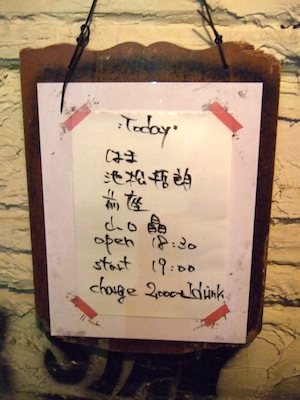 :Today:
はま
池松哲朗
前座
d.o 晶
open 18:30
start 19:00
charge 2,000- 1drink